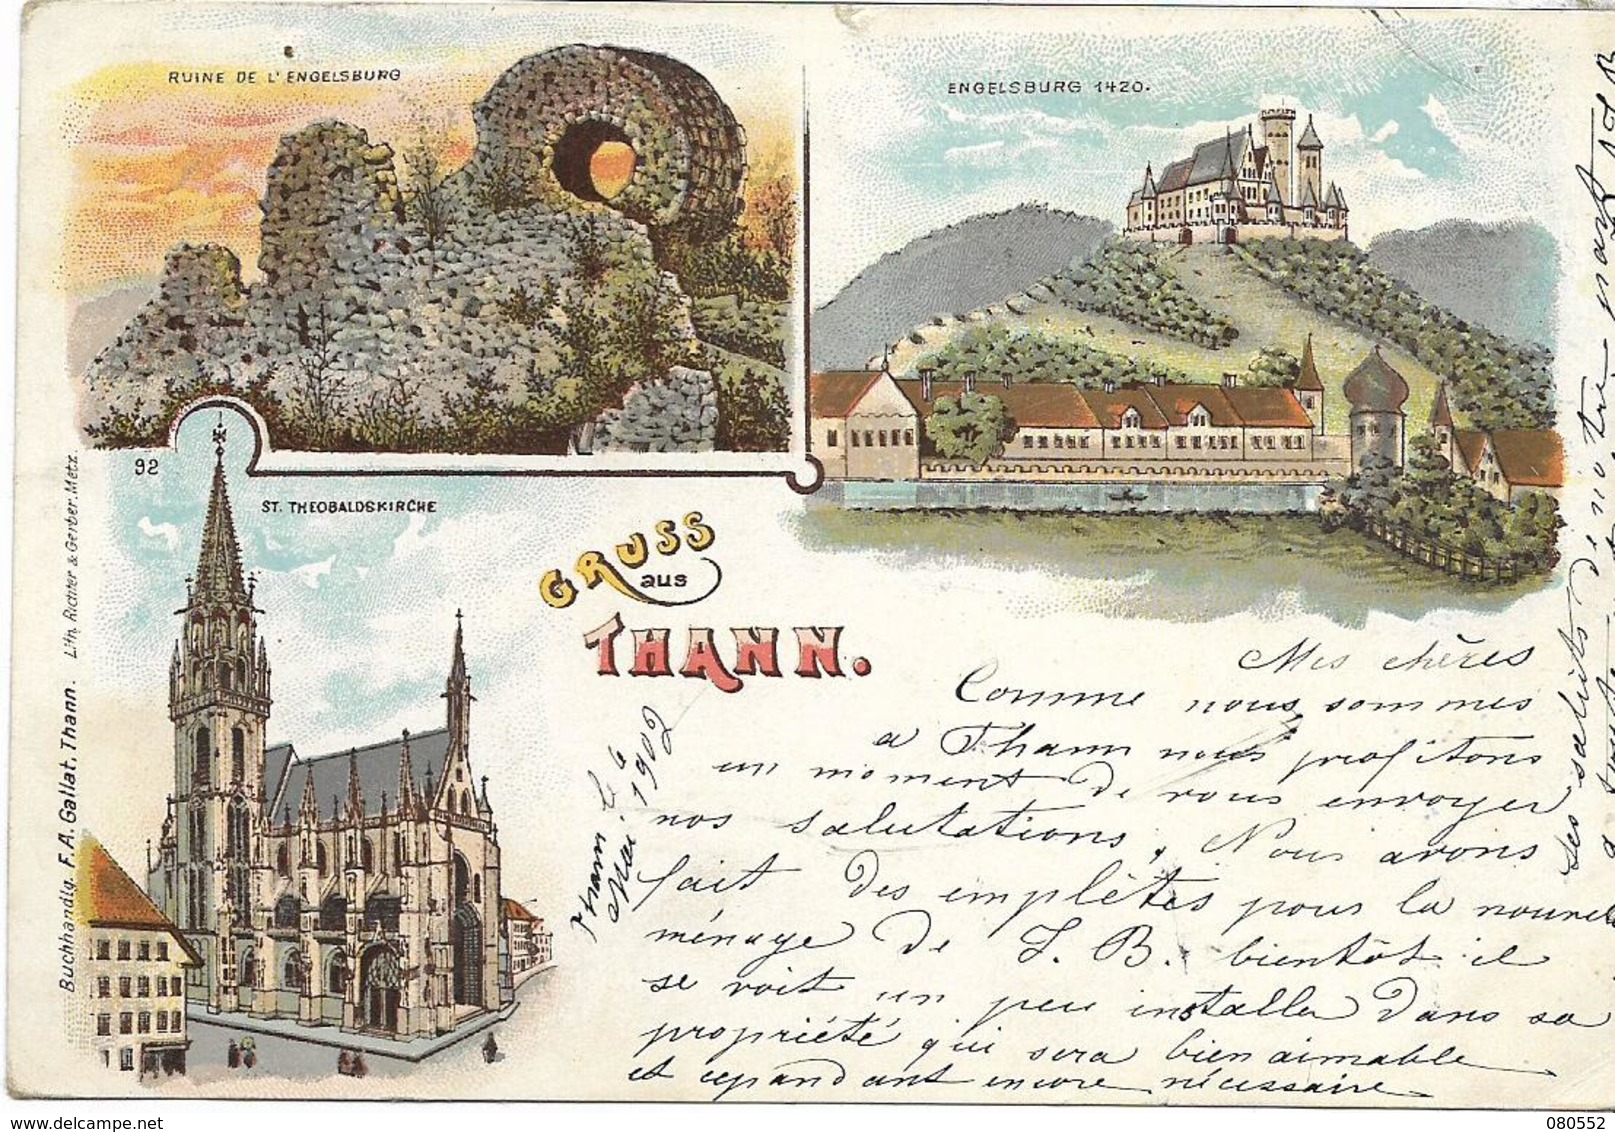 RUINE DE L'ENGELSBURG
ENGELSBURG 1420.
92
ST. THEOBALDSKIRCHE
GRUSS
aus
THANN.
Buchhandlg. F. A. Gallat. Thann. Lith. Richter & Gerber. Metz.
Thann le 6
Mai 1902
Mes chères
Comme nous sommes
a Thann nous profitons
un moment de vous envoyer
nos salutations, Nous avons
fait des emplètes pour la nouvele
ménage de J. B. bientôt il
se voit un peu installer dans sa
propriété qui sera bien aimable
et cepandant encore nécessaire
Les saluts de notre part
080552